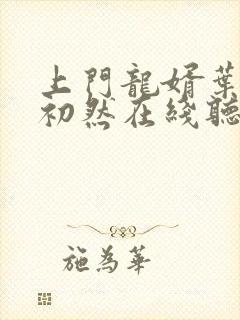 上門龍婿葉
初然在綫聽
施為華